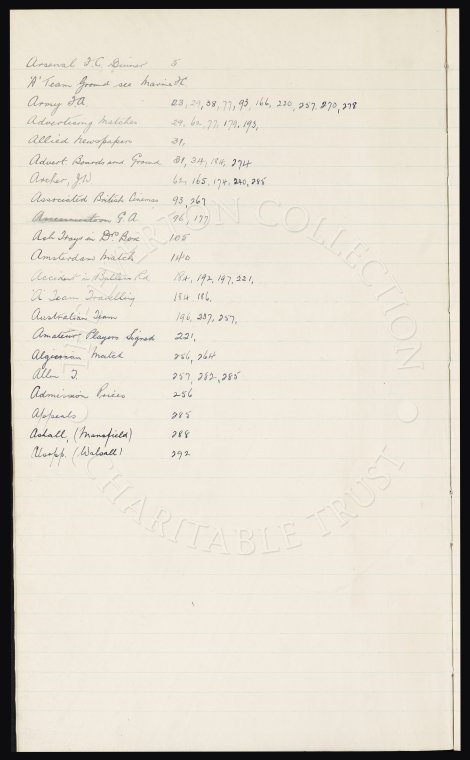 Arsenal F.C. Dinner 5
'A' Team Ground see Marine F.C.
Army F.A. 23, 29, 38, 77, 93, 166, 220, 257, 270, 278
Advertising Matches 29, 62, 77, 179, 193,
Allied Newspapers 31,
Advert Boards and Ground 31, 34, 184, 274
Archer, J.W 62, 165, 174, 240, 285
Associated British Cinemas 93, 267
G.A. 96, 177
Ash Trays in Drs Box 105
Amsterdam Match 140
Accident in Bullens Rd 184, 192, 197, 221,
'A' Team Travelling 184 186.
Australian Team 196, 237, 257,
Amateur Players Signed 221,
Algerian Match 256, 264
Allen T. 257, 282, 285
Admission Prices 256
Appeals 285
Ashall, (Mansfield) 288
Alsopp. (Walsall) 292
EVERTON COLLECTION
CHARITABLE TRUST